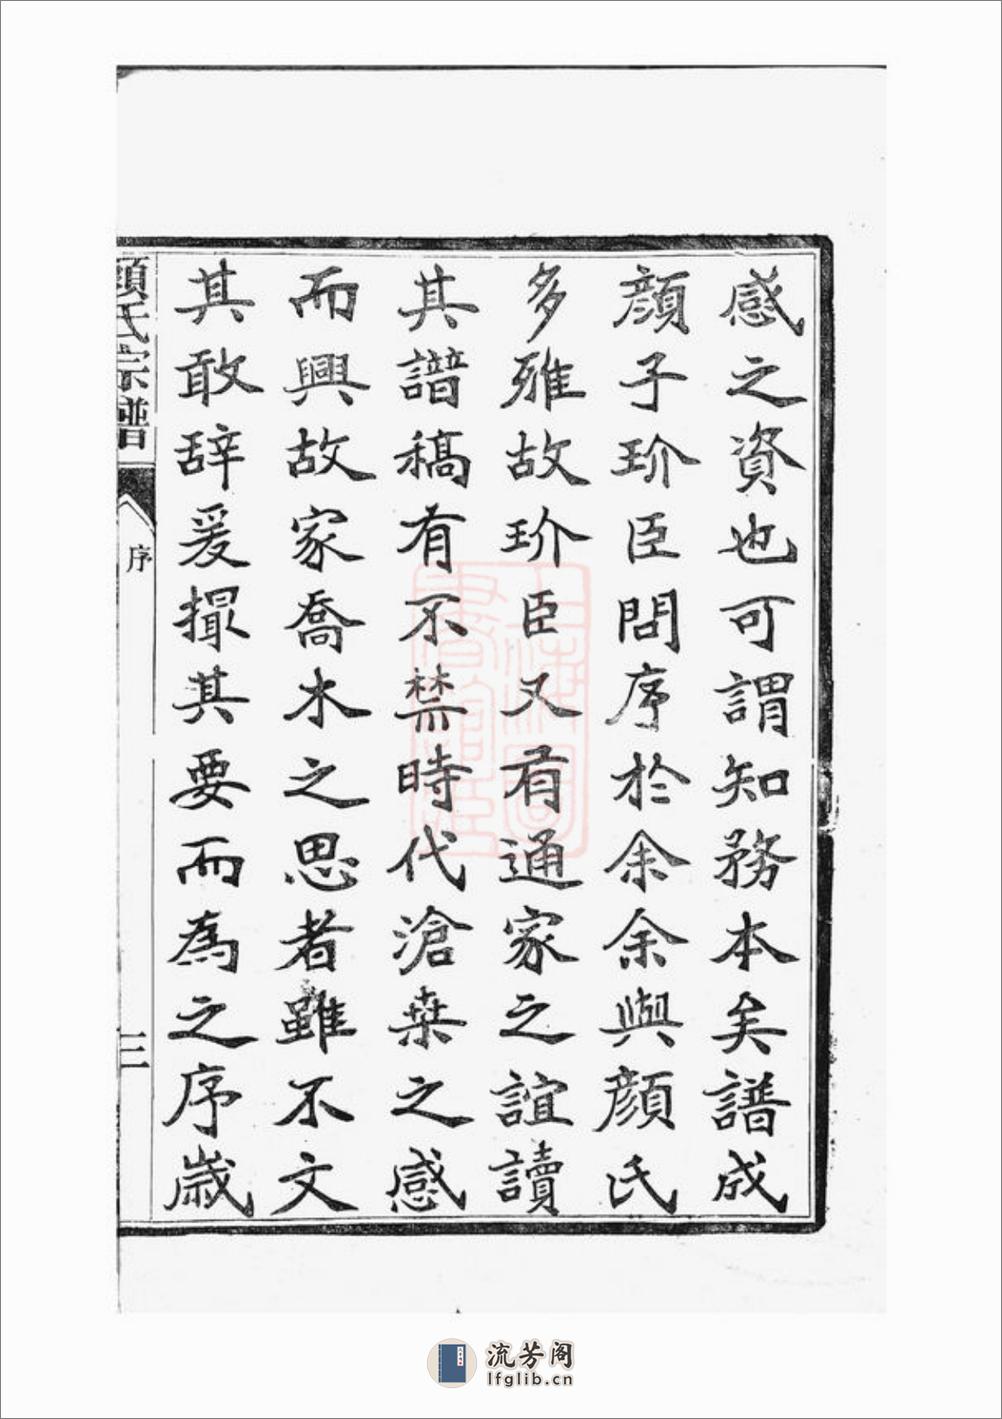 感之資也可謂知務本矣譜成
顏子玠臣問序於余余與顏氏
多雅故玠臣又有通家之誼讀
其譜稿有不禁時代滄桒之感
而興故家喬木之思者雖不文
其敢辞爰撮其要而為之序歲
顏氏宗譜
序
三
上海圖書館藏
流芳阁
lfglib.cn